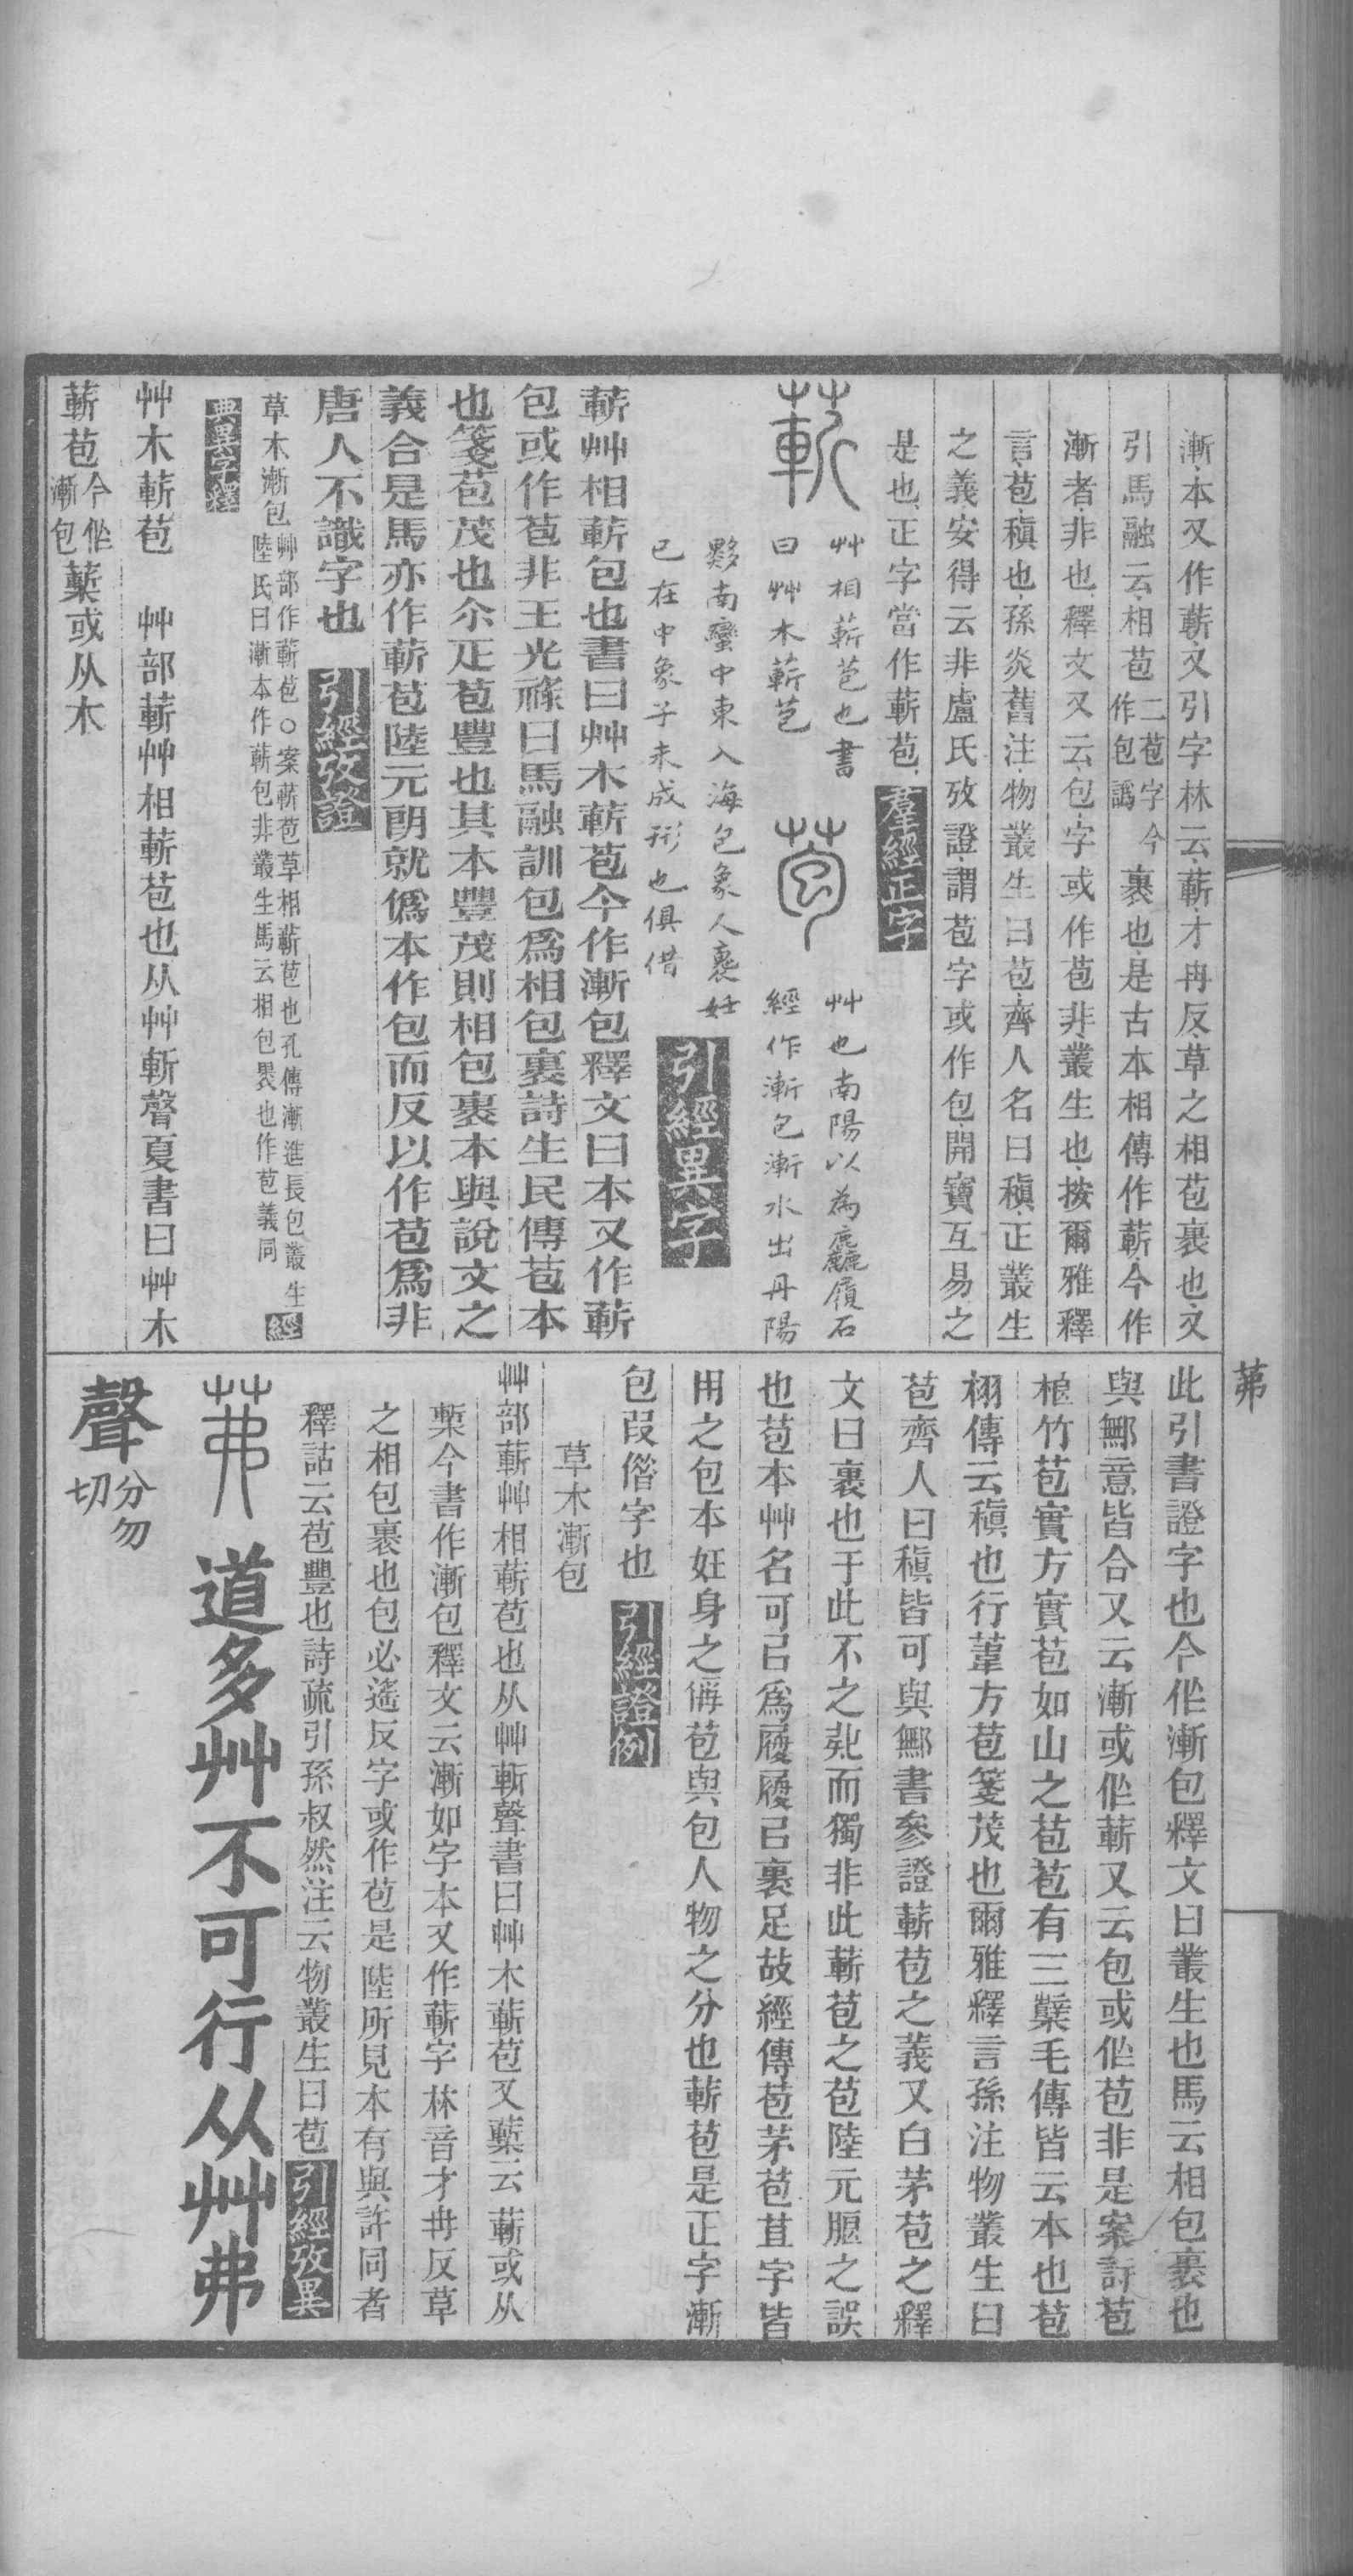 漸本又作蔪又引字林云蔪才冉反草之相苞裹也又
引馬融云相苞二苞字今作包譌裹也是古本相傳作蔪今作
漸者非也釋文又云包字或作苞非叢生也按爾雅釋
言苞稹也孫炎舊注物叢生曰苞齊人名曰稹正叢生
之義安得云非盧氏攷證謂苞字或作包開寶互易之
是也正字當作蔪苞 羣經正字
蔪 艸相蔪苞也書
曰艸木蔪苞
苞 艸也南陽以為麤履石
經作漸包漸水出丹陽
黟南蠻中東入海包象人褱妊
已在中象子未成形也俱借 引經異字
蔪艸相蔪包也書曰艸木蔪苞今作漸包釋文曰本又作蔪
包或作苞非王光祿曰馬融訓包爲相包裹詩生民傳苞本
也箋苞茂也尒疋苞豐也其本豐茂則相包裹本與說文之
義合是馬亦作蔪苞陸元朗就僞本作包而反以作苞爲非
唐人不識字也 引經攷證
草木漸包 艸部作蔪苞○案蔪苞草相蔪苞也孔傳漸進長包叢生
陸氏曰漸本作蔪包非叢生馬云相包裹也作苞義同 經
典異字釋
艸木蔪苞 艸部蔪艸相蔪苞也从艸斬聲夏書曰艸木
蔪苞今作漸包蔪或从木
茀
此引書證字也今作漸包釋文曰叢生也馬云相包裹也
與鄦意皆合又云漸或作蔪又云包或作苞非是案許苞
植竹苞實方實苞如山之苞苞有三櫱毛傳皆云本也苞
栩傳云稹也行葦方苞箋茂也爾雅釋言孫注物叢生曰
苞齊人曰稹皆可與鄦書參證蔪苞之義又白茅苞之釋
文曰裹也于此不之非而獨非此蔪苞之苞陸元朗之誤
也苞本艸名可㠯爲履履㠯裹足故經傳苞茅苞苴字皆
用之包本妊身之偁苞與包人物之分也蔪苞是正字漸
包叚借字也 引經證例
草木漸包
艸部蔪艸相蔪苞也从艸斬聲書曰艸木蔪苞又蔪云蔪或从
槧今書作漸包釋文云漸如字本又作蔪字林音才冉反草
之相包裹也包必遙反字或作苞是陸所見本有與許同者
釋詁云苞豐也詩疏引孫叔然注云物叢生曰苞 引經攷異
茀 道多艸不可行从艸弗
聲 分勿切